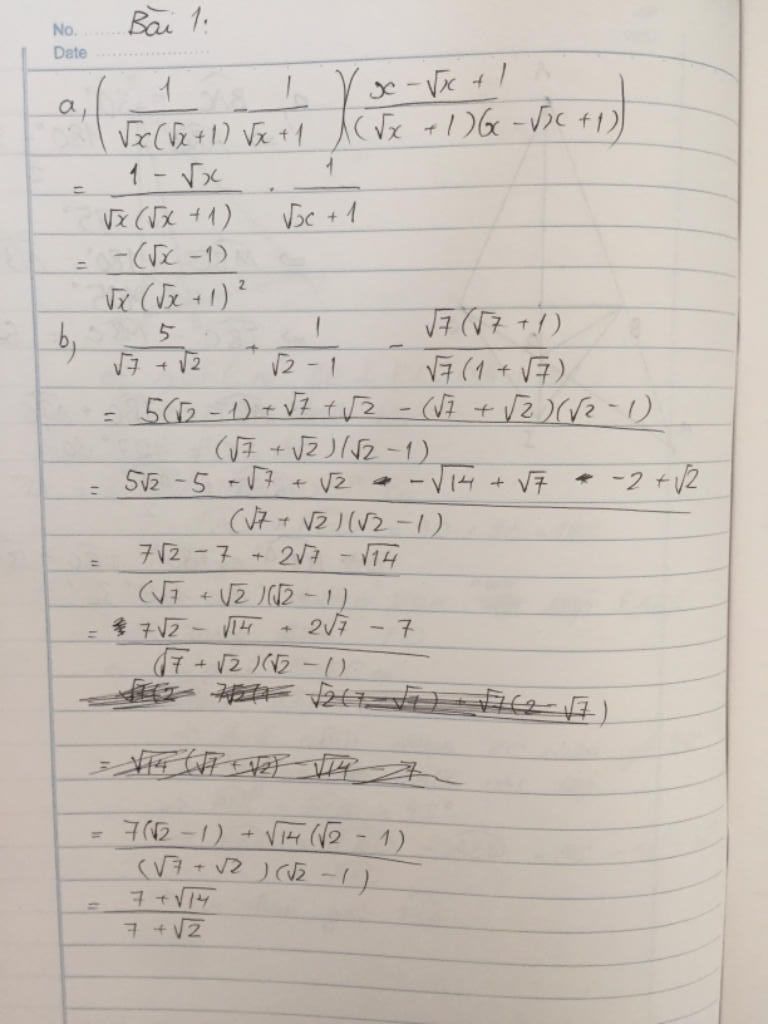 No. Bài 1:
Date
a, (1/(√x(√x+1)) - 1/(√x+1)) ((x - √x + 1)/((√x + 1)(x - √x + 1)))
= (1 - √x)/(√x(√x + 1)) . 1/(√x + 1)
= -(√x - 1)/(√x(√x + 1)²)
b, 5/(√7 + √2) + 1/(√2 - 1) - √7(√7 + 1)/(√7(1 + √7))
= (5(√2 - 1) + √7 + √2 - (√7 + √2)(√2 - 1))/((√7 + √2)(√2 - 1))
= (5√2 - 5 + √7 + √2 - √14 + √7 - 2 + √2)/((√7 + √2)(√2 - 1))
= (7√2 - 7 + 2√7 - √14)/((√7 + √2)(√2 - 1))
= (7√2 - √14 + 2√7 - 7)/((√7 + √2)(√2 - 1))
√2(7 - √7) + √7(2 - √7)
= √14(√7 + √2) - √14 - 7
= (7(√2 - 1) + √14(√2 - 1))/((√7 + √2)(√2 - 1))
= (7 + √14)/(7 + √2)